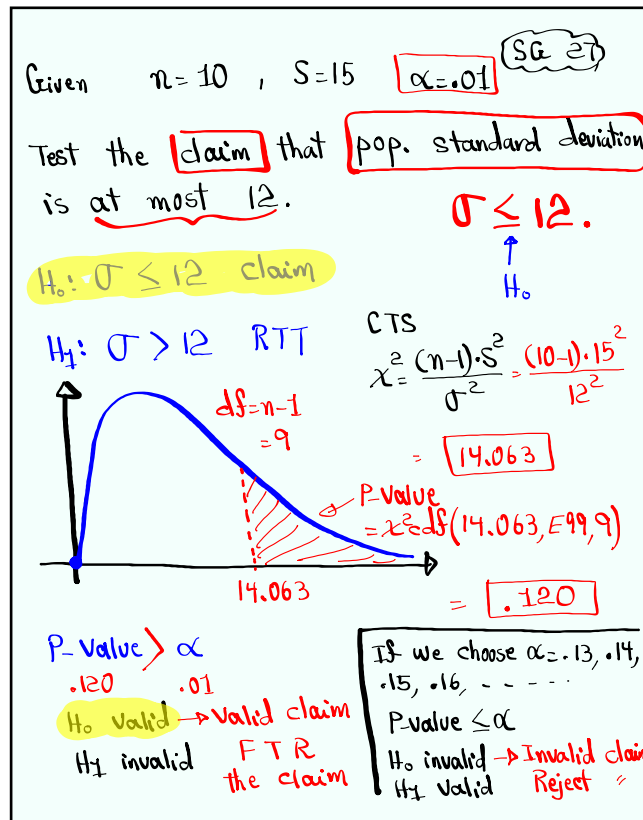 SG 27
Given n=10 , S=15 α=.01
Test the claim that pop. standard deviation
is at most 12.
σ ≤ 12.
H₀
H₀: σ ≤ 12 claim
H₁: σ > 12 RTT
CTS
χ² = (n-1)·S² / σ² = (10-1)·15² / 12²
= 14.063
df=n-1
=9
P-value
= χ²cdf(14.063, E99, 9)
= .120
14.063
P-Value > α
.120 .01
H₀ valid → Valid claim
H₁ invalid FTR
the claim
If we choose α=.13, .14,
.15, .16, - - - - - -
P-value ≤ α
H₀ invalid → Invalid claim
H₁ Valid Reject "